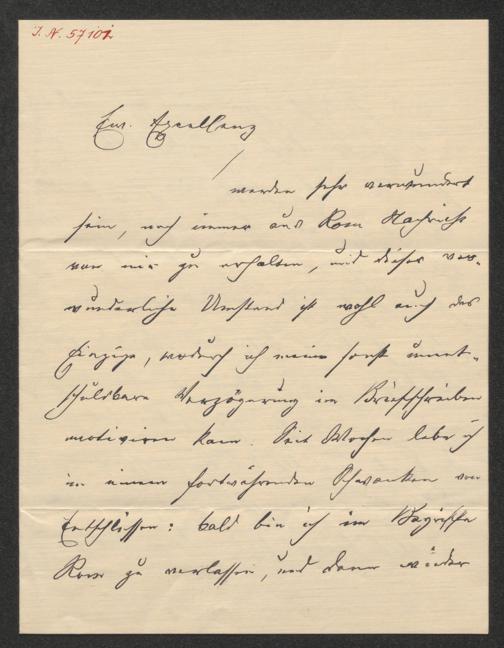 I. N. 57101
Ew. Excellenz
werden sehr verwundert
sein, noch immer aus Rom Nachricht
von mir zu erhalten, und dieser ver-
wunderliche Umstand ist wohl auch das
Einzige, wodurch ich meine sonst unent-
schuldbare Verzögerung im Briefschreiben
motiviren kann. Seit Wochen lebe ich
in einem fortwährenden Schwanken von
Entschlüssen: bald bin ich im Begriffe
Rom zu verlassen, und dann wieder